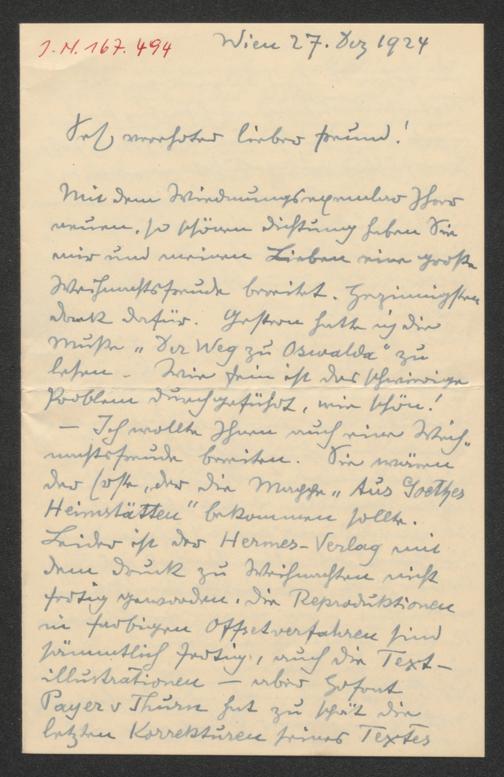 J.N. 167.494
Wien 27. Dez 1924
Sehr verehrter lieber Freund!
Mit dem Widmungsexemplar Ihrer
neuen, so schönen Dichtung haben Sie
mir und meinen Lieben eine große
Weihnachtsfreude bereitet. Herzinnigsten
Dank dafür. Gestern hatte ich die
Muße „Der Weg zu Oswalda" zu
lesen. – Wie fein ist das schwierige
Problem durchgeführt, wie schön!
– Ich wollte Ihnen auch eine Weih-
nachtsfreude bereiten. Sie wären
der Erste, der die Mappe „Aus Goethes
Heimstätten" bekommen sollte.
Leider ist der Hermes-Verlag mit
dem Druck zu Weihnachten nicht
fertig geworden. Die Reproduktionen
in farbigen Offsetverfahren sind
sämmtlich fertig, auch die Text-
illustrationen – aber Hofrat
Payer v Thurn hat zu spät die
letzten Korrekturen seines Textes